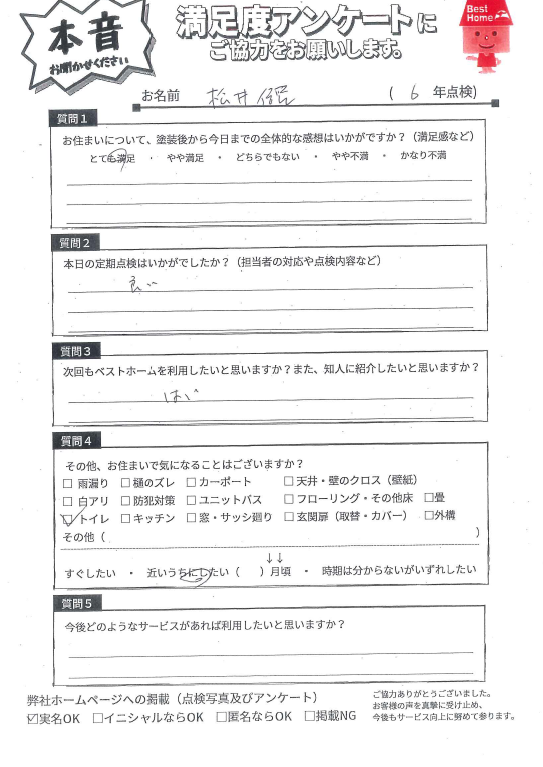 本音
お聞かせください
満足度アンケートに
ご協力をお願いします。
Best
Home
お名前 松井 ( 6 年点検)
質問1
お住まいについて、塗装後から今日までの全体的な感想はいかがですか？（満足感など）
とても満足 ・ やや満足 ・ どちらでもない ・ やや不満 ・ かなり不満
質問2
本日の定期点検はいかがでしたか？（担当者の対応や点検内容など）
良い
質問3
次回もベストホームを利用したいと思いますか？また、知人に紹介したいと思いますか？
はい
質問4
その他、お住まいで気になることはございますか？
☐ 雨漏り ☐ 樋のズレ ☐ カーポート ☐ 天井・壁のクロス（壁紙）
☐ 白アリ ☐ 防犯対策 ☐ ユニットバス ☐ フローリング・その他床 ☐畳
☑ トイレ ☐ キッチン ☐ 窓・サッシ廻り ☐ 玄関扉（取替・カバー） ☐外構
その他（ ）
↓↓
すぐしたい ・ 近いうちにしたい（ ）月頃 ・ 時期は分からないがいずれしたい
質問5
今後どのようなサービスがあれば利用したいと思いますか？
弊社ホームページへの掲載（点検写真及びアンケート）
☑実名OK ☐イニシャルならOK ☐匿名ならOK ☐掲載NG
ご協力ありがとうございました。
お客様の声を真摯に受け止め、
今後もサービス向上に努めて参ります。